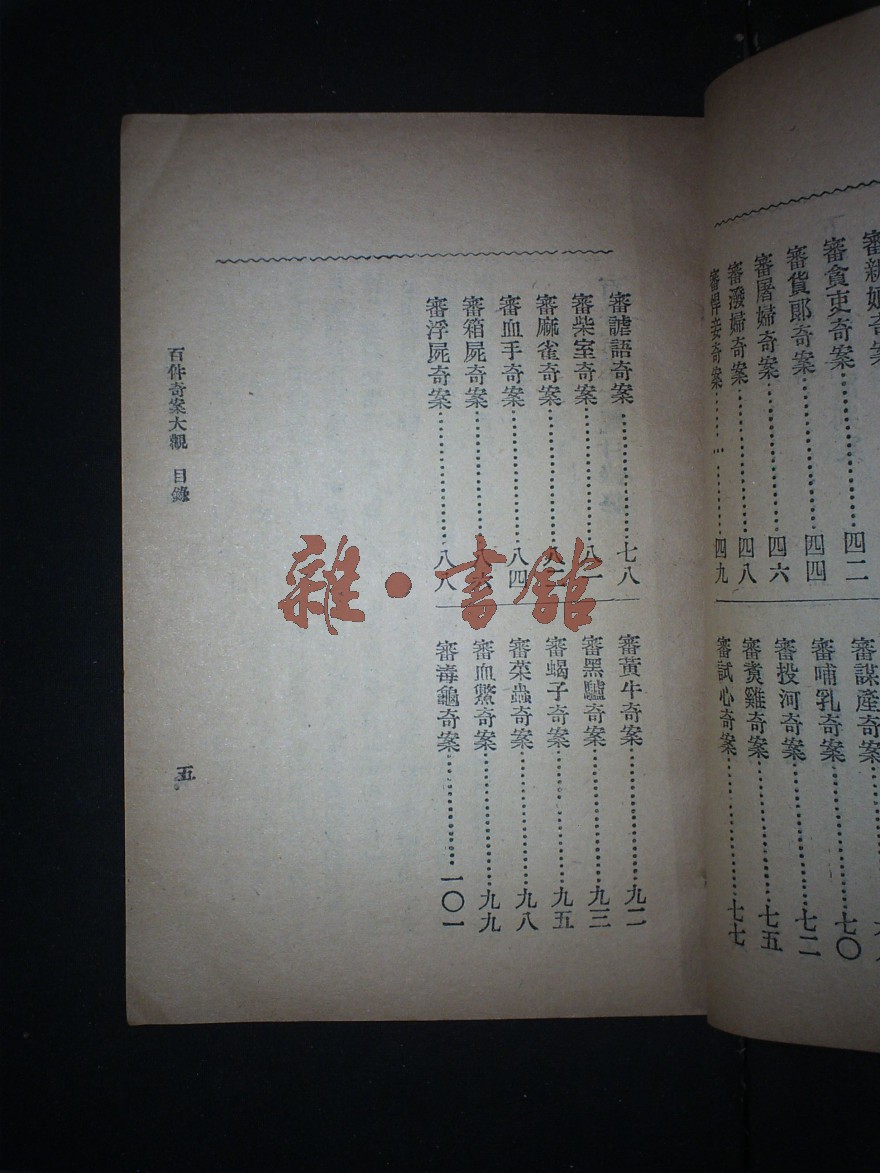 審貪吏奇案……四二
審貨郎奇案……四四
審屠婦奇案……四六
審潑婦奇案……四八
審悍妾奇案……四九
審謀產奇案
審哺乳奇案……七〇
審投河奇案……七二
審賣雞奇案……七五
審試心奇案……七七
審謔語奇案……七八
審柴室奇案……八一
審麻雀奇案
審血手奇案……八四
審箱屍奇案……八六
審浮屍奇案……八八
審黃牛奇案……九二
審黑驢奇案……九三
審蝎子奇案……九五
審菜蟲奇案……九八
審血鱉奇案……九九
審毒龜奇案……一〇一
百件奇案大觀 目錄
五
雜·書館